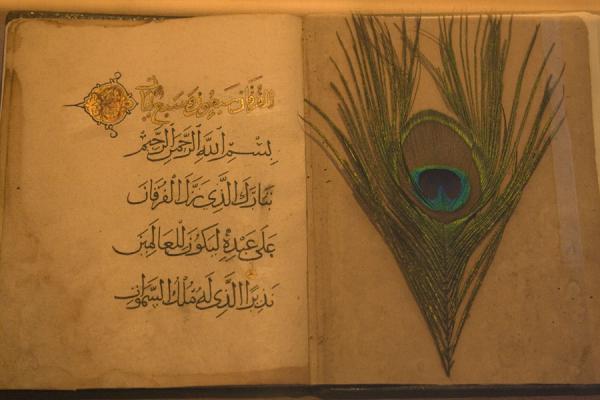 الفرقان سبعون وسبع آيات
بِسْمِ اللَّهِ الرَّحْمٰنِ الرَّحِيمِ
تَبَارَكَ الَّذِي نَزَّلَ الْفُرْقَانَ
عَلَى عَبْدِهِ لِيَكُونَ لِلْعَالَمِينَ
نَذِيرًا الَّذِي لَهُ مُلْكُ السَّمٰوَاتِ